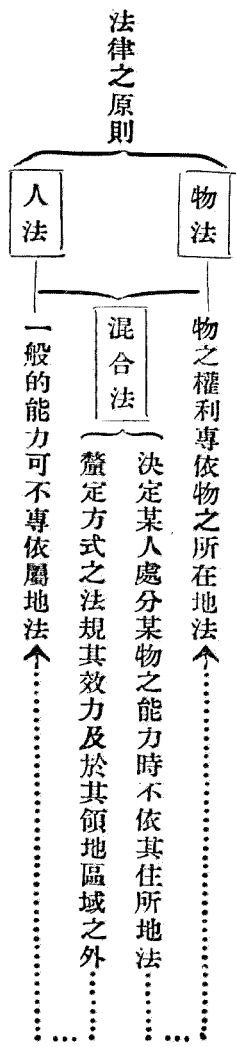 法律之原則
物法
人法
物之權利專依物之所在地法
混合法
決定某人處分某物之能力時不依其住所地法
釐定方式之法規其效力及於其領地區域之外
一般的能力可不專依屬地法